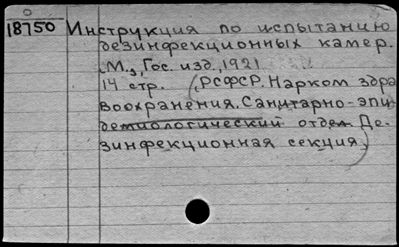 0
18750 Инструкция по испытанию
дезинфекционных камер.
М., Гос. изд., 1921
14 стр. (РСФСР. Нарком здра
воохранения. Санитарно-эпи
демиологический отдел Де
зинфекционная секция)